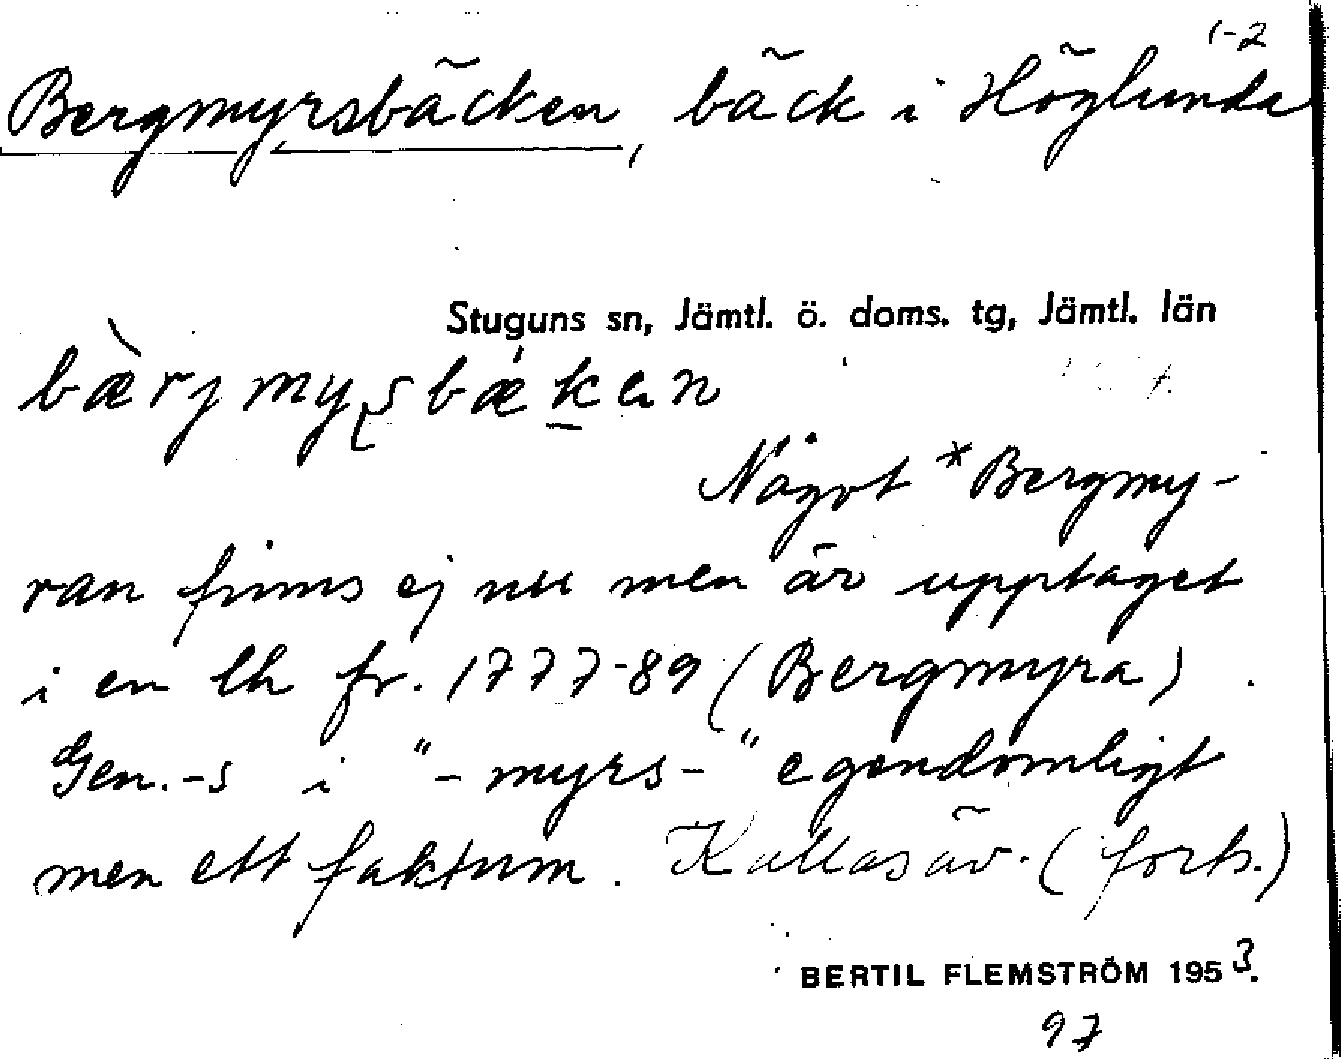 1-2
Bergmyrsbäcken, bäck i Höglunda
Stuguns sn, Jämtl. ö. doms. tg, Jämtl. län
Något *Bergmy-
ran finns ej nu men är upptaget
i en lh fr. 1777-89 (Bergmyra).
Gen.-s i "-myrs-" egendomligt
men ett faktum. Kallas äv. (forts.)
BERTIL FLEMSTRÖM 1953.
97